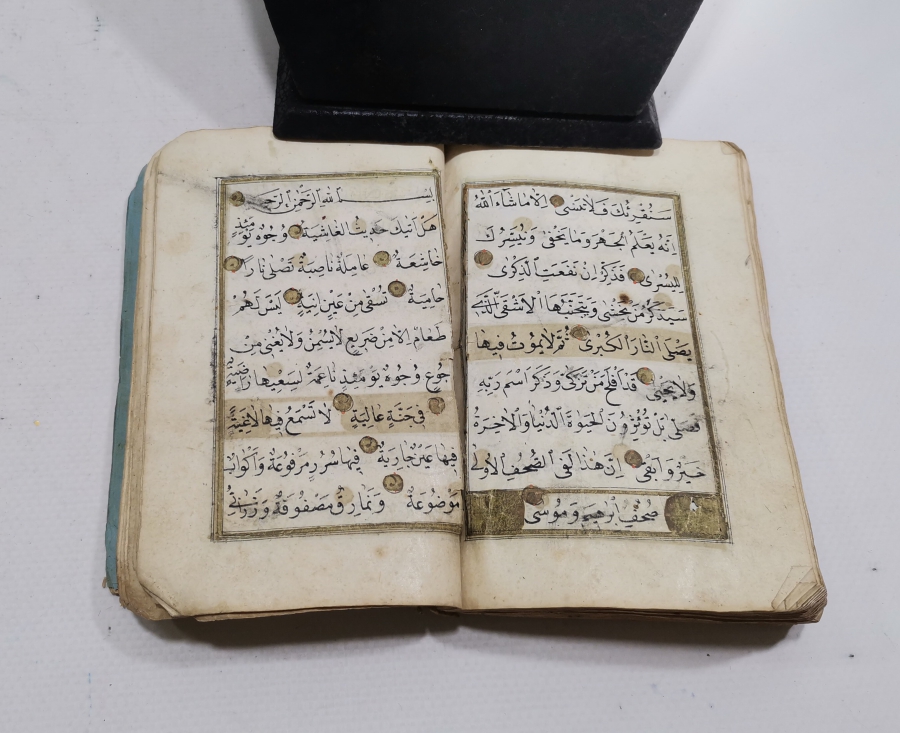 سَنُقْرِئُكَ فَلَا تَنْسٰى اِلَّا مَاشَٓاءَ اللّٰهُ
اِنَّهُ يَعْلَمُ الْجَهْرَ وَمَا يَخْفٰى وَنُيَسِّرُكَ
لِلْيُسْرٰى فَذَكِّرْ اِنْ نَفَعَتِ الذِّكْرٰى
سَيَذَّكَّرُ مَنْ يَخْشٰى وَيَتَجَنَّبُهَا الْاَشْقَى الَّذ۪ى
يَصْلَى النَّارَ الْكُبْرٰى ثُمَّ لَا يَمُوتُ ف۪يهَا
وَلَا يَحْيٰى قَدْ اَفْلَحَ مَنْ تَزَكّٰى وَذَكَرَ اسْمَ رَبِّه۪
فَصَلّٰى بَلْ تُؤْثِرُونَ الْحَيٰوةَ الدُّنْيَا وَالْاٰخِرَةُ
خَيْرٌ وَاَبْقٰى اِنَّ هٰذَا لَفِى الصُّحُفِ الْاُولٰى
صُحُفِ اِبْرٰه۪يمَ وَمُوسٰى
بِسْــــمِ اللّٰهِ الرَّحْمٰنِ الرَّح۪يمِ
هَلْ اَتٰيكَ حَد۪يثُ الْغَاشِيَةِ وُجُوهٌ يَوْمَئِذٍ
خَاشِعَةٌ عَامِلَةٌ نَاصِبَةٌ تَصْلٰى نَارًا
حَامِيَةً تُسْقٰى مِنْ عَيْنٍ اٰنِيَةٍ لَيْسَ لَهُمْ
طَعَامٌ اِلَّا مِنْ ضَر۪يعٍ لَا يُسْمِنُ وَلَا يُغْن۪ى مِنْ
جُوعٍ وُجُوهٌ يَوْمَئِذٍ نَاعِمَةٌ لِسَعْيِهَا رَاضِيَةٌ
ف۪ى جَنَّةٍ عَالِيَةٍ لَا تَسْمَعُ ف۪يهَا لَاغِيَةً
ف۪يهَا عَيْنٌ جَارِيَةٌ ف۪يهَا سُرُرٌ مَرْفُوعَةٌ وَاَكْوَابٌ
مَوْضُوعَةٌ وَنَمَارِقُ مَصْفُوفَةٌ وَزَرَابِىُّ